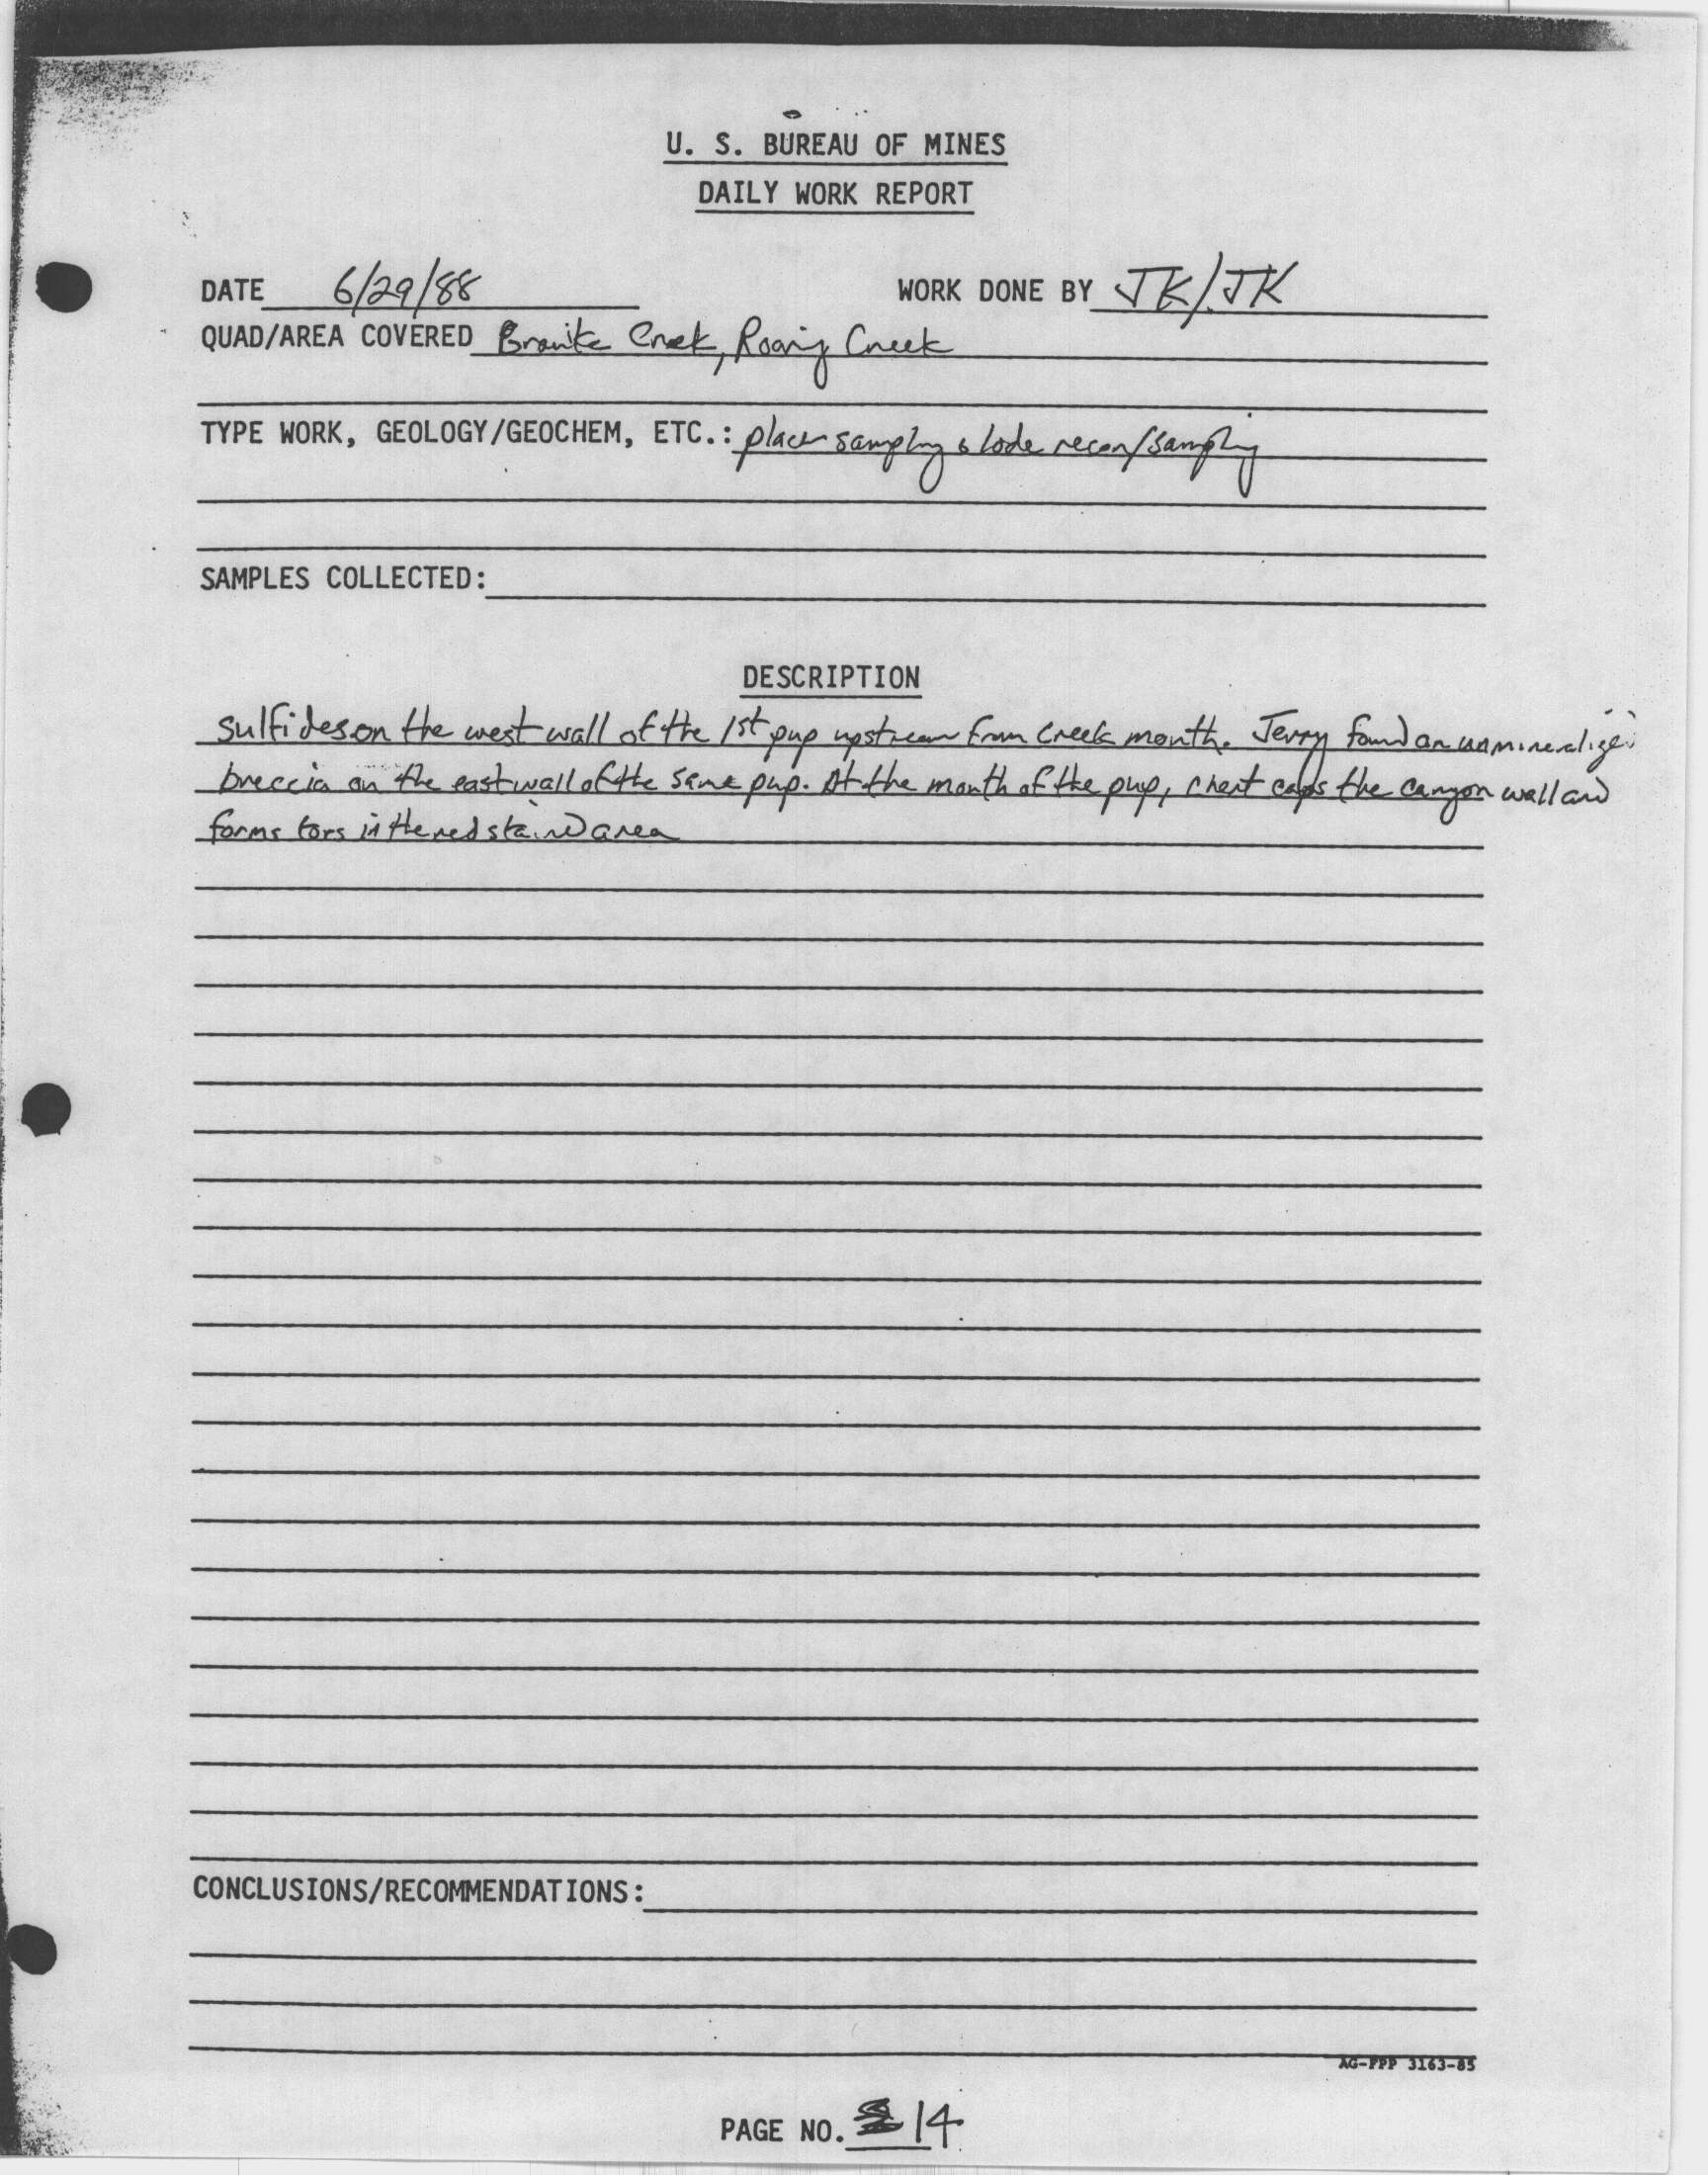 U. S. BUREAU OF MINES
DAILY WORK REPORT
DATE 6/29/88 WORK DONE BY JK/JK
QUAD/AREA COVERED Creek, Roaring Creek
TYPE WORK, GEOLOGY/GEOCHEM, ETC.: placer sampling & lode recon/sampling
SAMPLES COLLECTED:
DESCRIPTION
sulfides on the west wall of the 1st pup upstream from creek mouth. Jerry found an unmineralized
breccia on the east wall of the same pup. At the mouth of the pup, chert caps the canyon wall and
forms tors in the red stained area
CONCLUSIONS/RECOMMENDATIONS:
AG-FPP 3163-85
PAGE NO. 14